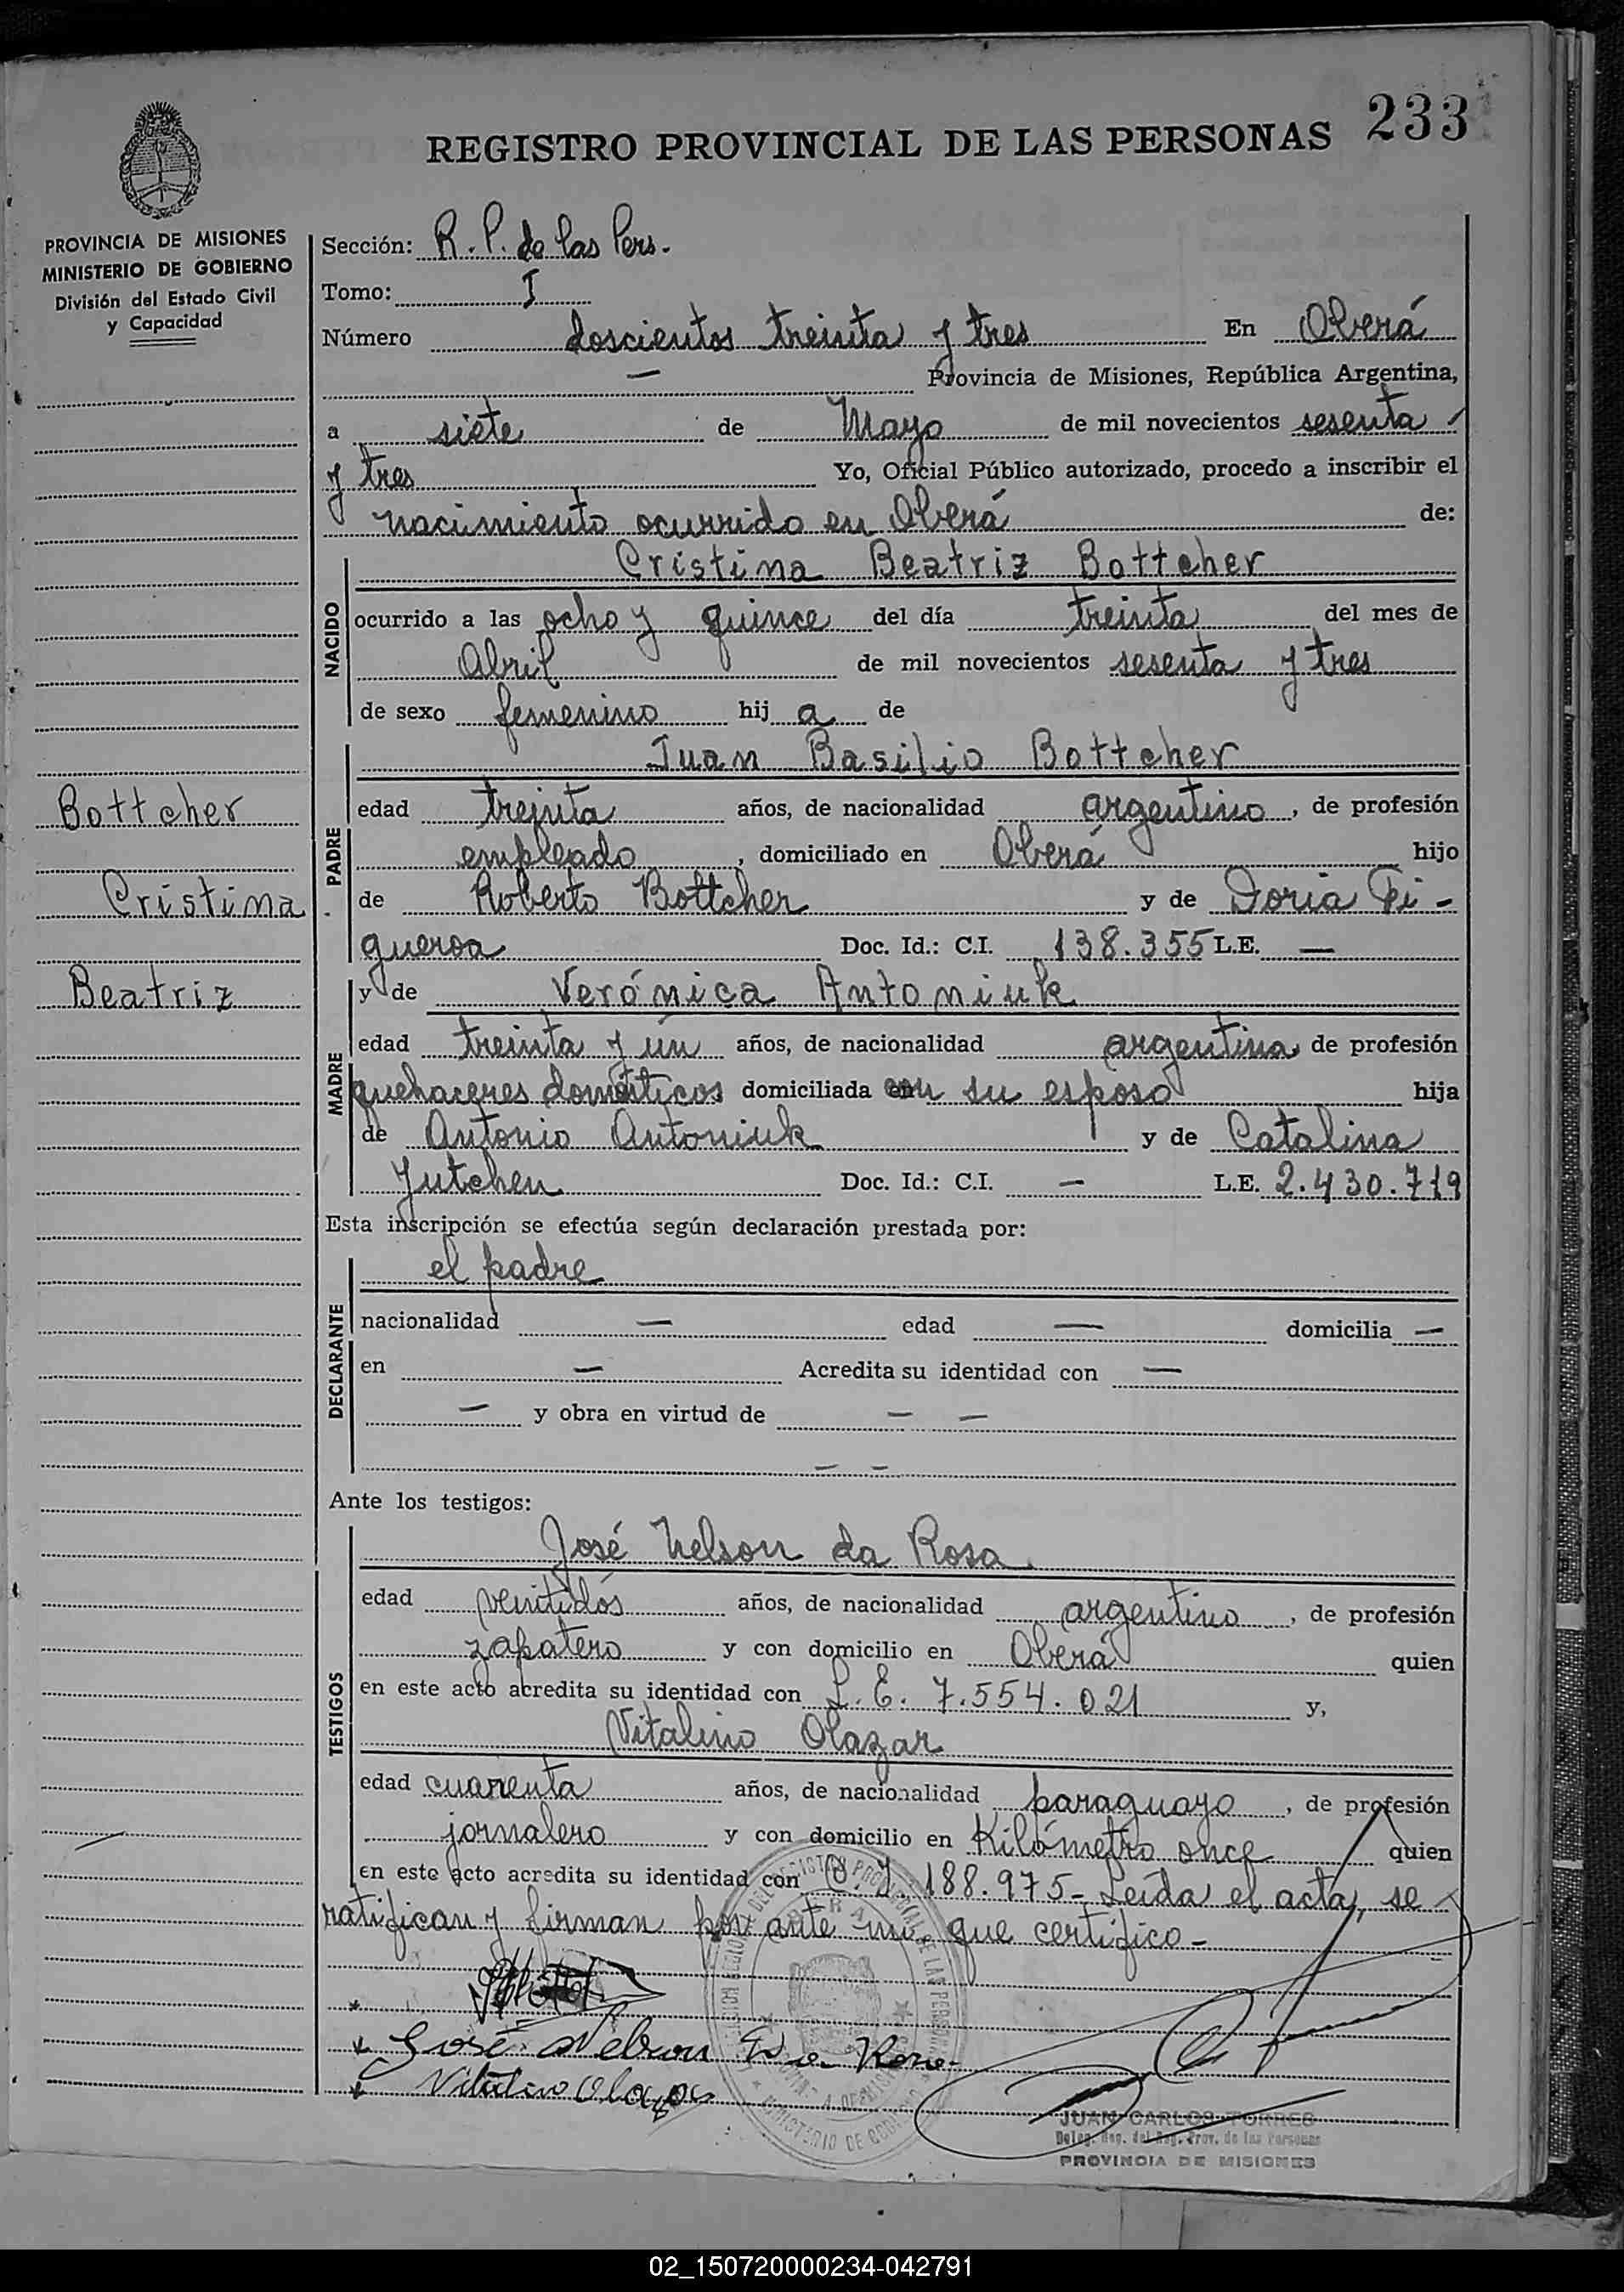 233
REGISTRO PROVINCIAL DE LAS PERSONAS
PROVINCIA DE MISIONES
MINISTERIO DE GOBIERNO
División del Estado Civil
y Capacidad
Bottcher
Cristina
Beatriz
Sección: R. P. de las Pers.
Tomo: I
Número doscientos treinta y tres En Oberá
— Provincia de Misiones, República Argentina,
a siete de Mayo de mil novecientos sesenta
y tres Yo, Oficial Público autorizado, procedo a inscribir el
nacimiento ocurrido en Oberá de:
NACIDO
Cristina Beatriz Bottcher
ocurrido a las ocho y quince del día treinta del mes de
Abril de mil novecientos sesenta y tres
de sexo femenino hij a de
PADRE
Juan Basilio Bottcher
edad treinta años, de nacionalidad argentino, de profesión
empleado, domiciliado en Oberá hijo
de Roberto Bottcher y de Doria Fi-
gueroa Doc. Id.: C.I. 138.355 L.E. —
MADRE
y de Verónica Antoniuk
edad treinta y un años, de nacionalidad argentina de profesión
quehaceres domésticos domiciliada con su esposo hija
de Antonio Antoniuk y de Catalina
Jutchen Doc. Id.: C.I. — L.E. 2.430.719
Esta inscripción se efectúa según declaración prestada por:
DECLARANTE
el padre
nacionalidad — edad — domicilia —
en — Acredita su identidad con —
— y obra en virtud de — —
— —
Ante los testigos:
TESTIGOS
José Nelson da Rosa
edad venitidós años, de nacionalidad argentino, de profesión
zapatero y con domicilio en Oberá quien
en este acto acredita su identidad con L. E. 7.554.021 y,
Vitalino Olazar
edad cuarenta años, de nacionalidad paraguayo, de profesión
jornalero y con domicilio en Kilómetro once quien
en este acto acredita su identidad con C. I. 188.975- Leída el acta, se
ratifican y firman por ante mi que certifico-
José Nelson Da Rosa
Vitalino Olazar
JUAN CARLOS TORRES
Deleg. Reg. del Reg. Prov. de las Personas
PROVINCIA DE MISIONES
02_150720000234-042791